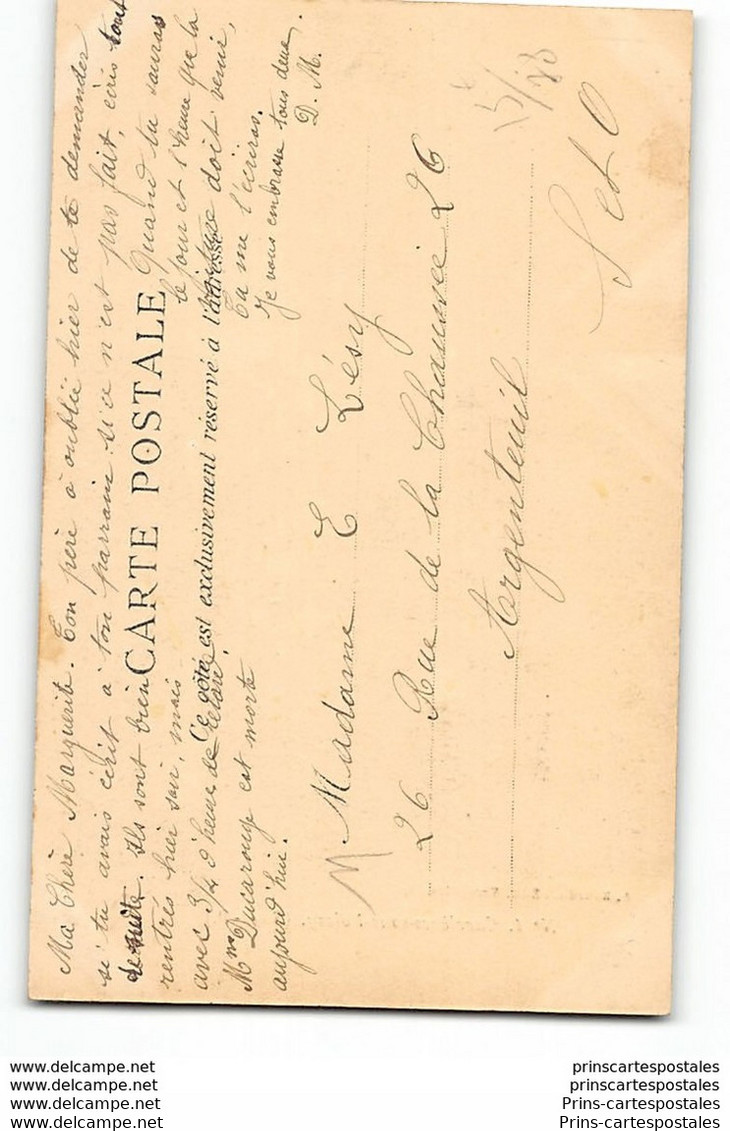 Ma Chère Marguerite. Ton père à oublié hier de te demander
si tu avais écrit à ton parrain si ce n'est pas fait, écris tout
de suite. Ils sont bien
rentrés hier soir, mais
avec 3/4 d'heure de retard.
Mme Ducarouge est morte
aujourd'hui.
Quand tu sauras
le jour et l'heure que la
doit venir,
tu me l'écriras.
Je vous embrasse tous deux
D. M.
CARTE POSTALE
Ce côté est exclusivement réservé à l'adresse
M Madame E Lésy
26 Rue de la Chaussée 26
Argenteuil
S et O
www.delcampe.net
www.delcampe.net
www.delcampe.net
www.delcampe.net
prinscartespostales
prinscartespostales
Prins-cartespostales
Prins-cartespostales